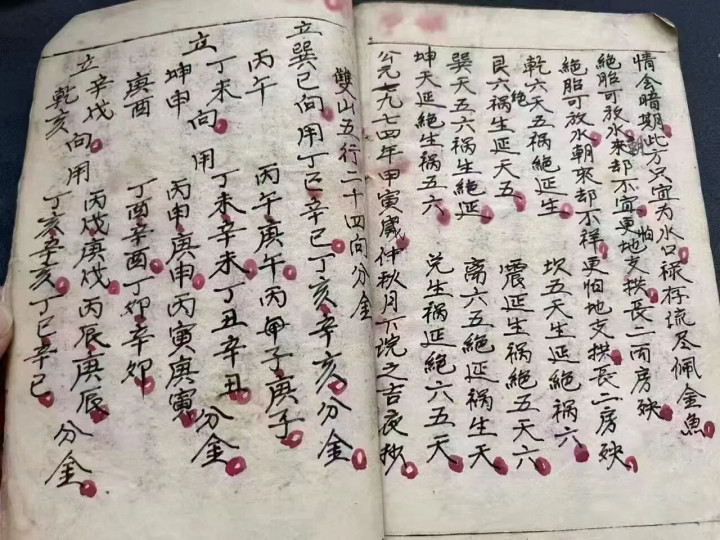 情舍暗期此方只宜为水口禄存流尽佩金魚
絕胎可放水來却不宜更怕地支拱長二両房殃
朝
絕胎可放水朝來却不祥更怕地支拱長二房殃
乾六天五祸絶延生 坎五天生延絶祸六
絶
艮六祸生延天五 震延生祸絶五天六
巽天五六祸生絶延 离六五絶延祸生天
坤天延絶生祸五六 兑生祸延絶六五天
公元一九七四年甲寅歲仲秋月下浣之吉夜抄
雙山五行二十四向分金
立巽巳向用丁巳辛巳丁亥辛亥分金
丙午 丙午庚午丙子庚子
立丁未向用丁未辛未丁丑辛丑分金
坤申 丙申庚申丙寅庚寅
庚酉 丁酉辛酉丁卯辛卯
立辛戌向用丙戌庚戌丙辰庚辰分金
乾亥 丁亥辛亥丁巳辛巳